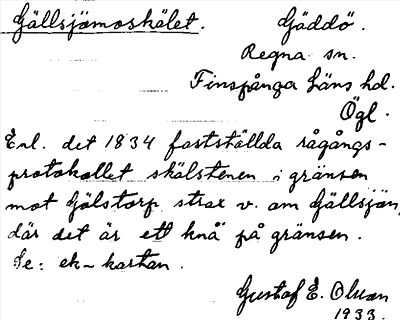 Gällsjömoskälet. Gäddö.
Regna sn.
Finspånga Läns hd.
Ögl.
Enl. det 1834 fastställda rågångs-
protokollet skälstenen i gränsen
mot Gölstorp strax v. om Gällsjön,
där det är ett "knä" på gränsen.
Se: ek-kartan.
Gustaf E. Olsson
1933.